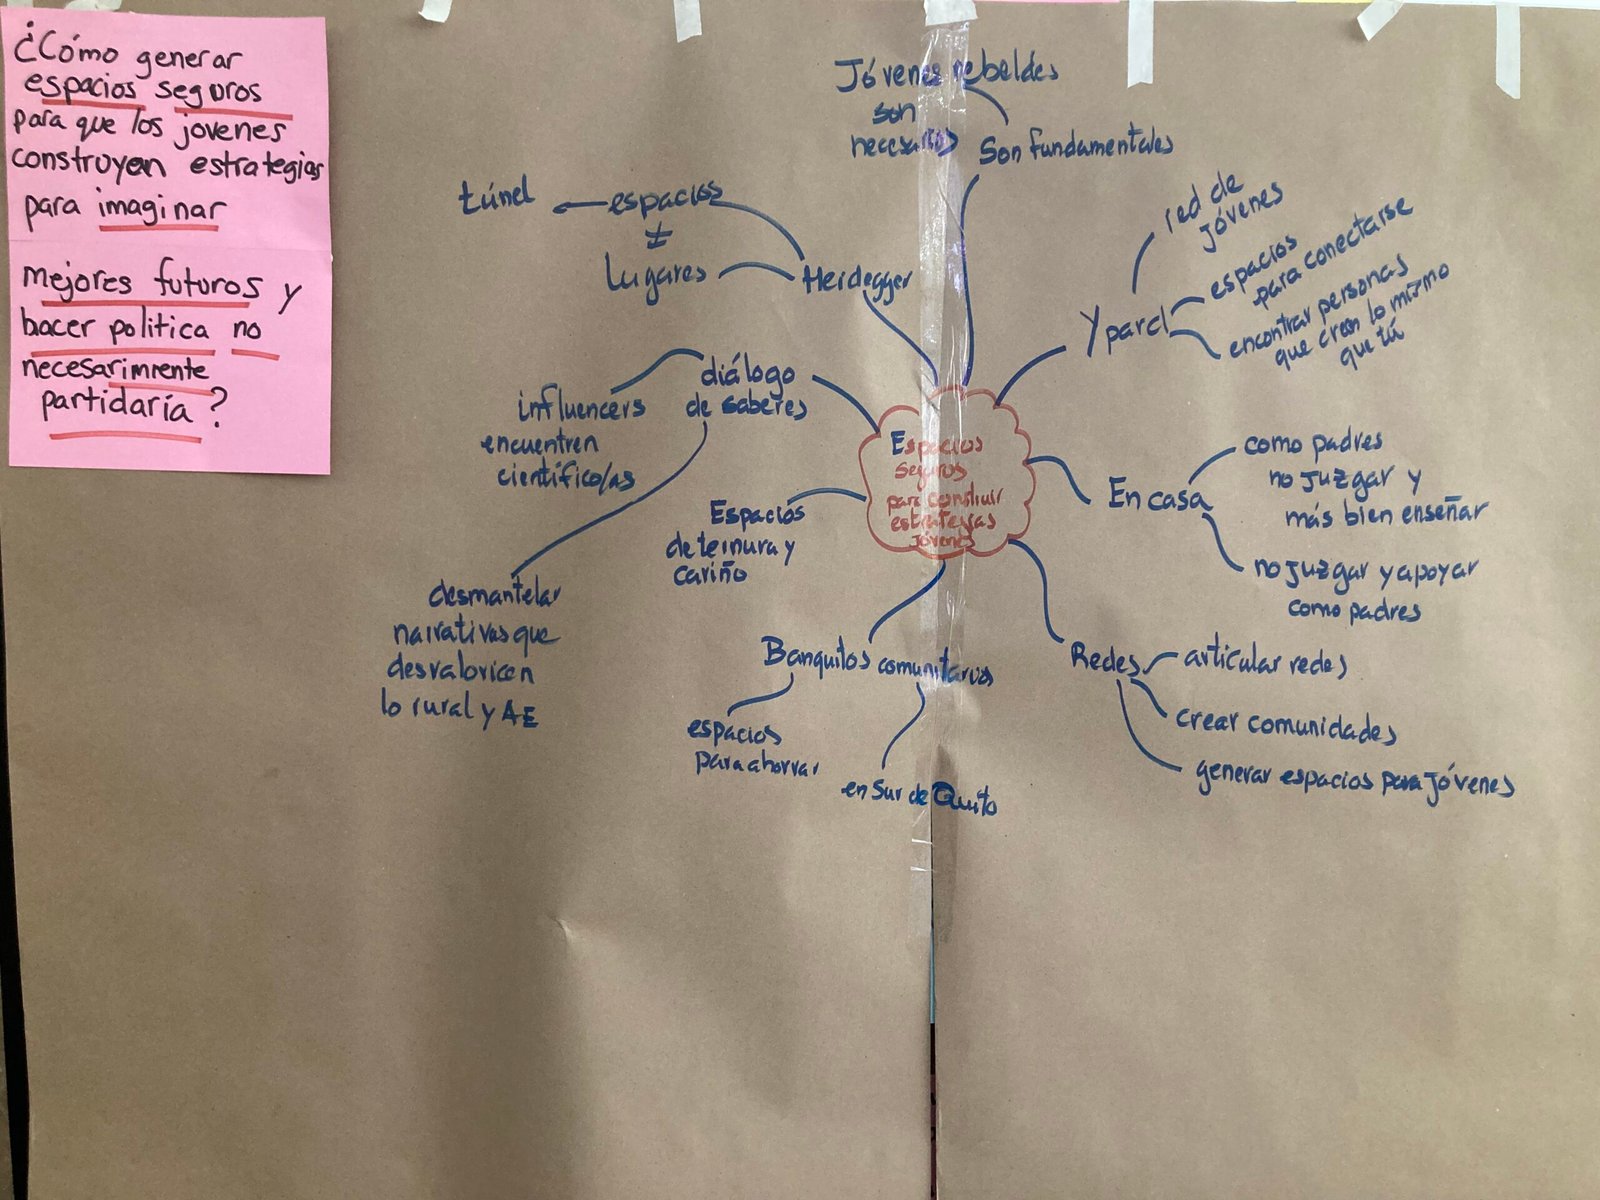 ¿Cómo generar
espacios seguros
para que los jovenes
construyan estrategias
para imaginar
mejores futuros y
hacer politica no
necesarimrente
partidaría?
Jóvenes rebeldes
son
necesarios
Son fundamentales
túnel
espacios
≠
Lugares
Heidegger
red de
jóvenes
Yparcl
espacios
para conectarse
encontrar personas
que creen lo mismo
que tú
diálogo
de saberes
influencers
encuentren
científico/as
desmantelar
narrativas que
desvaloricen
lo rural y AE
Espacios
seguros
para construir
estrategias
jóvenes
Espacios
de ternura y
cariño
En casa
como padres
no juzgar y
más bien enseñar
no juzgar y apoyar
como padres
Banquitos comunitarios
espacios
para ahorrar
en Sur de Quito
Redes
articular redes
crear comunidades
generar espacios para jóvenes